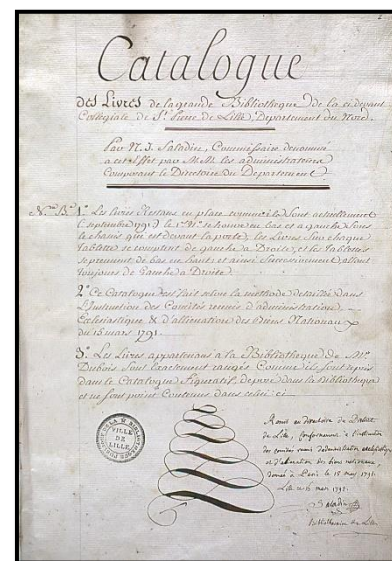 Catalogue
des Livres de la grande Bibliotheque de la ci devant
Collegiale de St. Pierre de Lille, Departement du Nord.
Par N. J. Saladin, Commissaire denommé
a cet effet par MM. les administrateurs
Composant le Directoire du Departement
1° Les livres Restans en place comme ils sont actuellement
(septembre 1791) le 1er N° se trouve en bas et a gauche sous
le champ qui est devant la porte, les Livres sur chaque
Tablette se comptent de gauche a Droite, et les Tablettes
se prennent de bas en haut; et ainsi successivement allant
toujours de Gauche a Droite.
2° Ce Catalogue est fait selon la méthode detaillée dans
L'instruction des Comités reunis d'administration
Ecclesiastique & d'alienation des Biens Nationaux
du 15 mars 1791.
3° Les Livres appartenans a la Bibliotheque de Mr.
Dubois sont Exactement rangés Comme ils sont repris
dans le Catalogue Figuratif deposé dans la Bibliotheque
et ne sont point Contenus dans celui-ci
VILLE
DE
LILLE
Remis au directoire du District
de Lille, conformement a l'instruction
des comités reunis d'administration ecclesiastique
et d'alienation des biens nationaux
donné a Paris le 15 may 1791.
Lille 6 mars 1792.
Saladin
Bibliothecaire de Lille